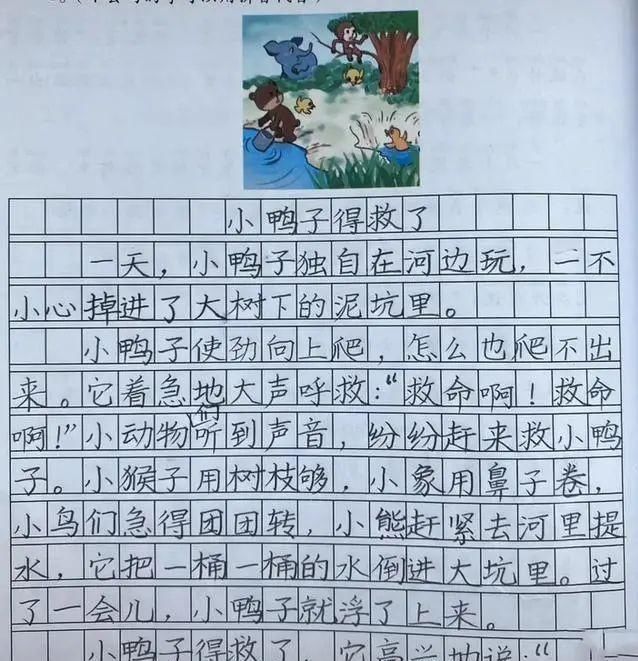 小鸭子得救了
一天，小鸭子独自在河边玩，二不
小心掉进了大树下的泥坑里。
小鸭子使劲向上爬，怎么也爬不出
来。它着急地大声呼救：“救命啊！救命
啊！”小动物们听到声音，纷纷赶来救小鸭
子。小猴子用树枝够，小象用鼻子卷，
小鸟们急得团团转，小熊赶紧去河里提
水，它把一桶一桶的水倒进大坑里。过
了一会儿，小鸭子就浮了上来。
小鸭子得救了，它高兴地说：“